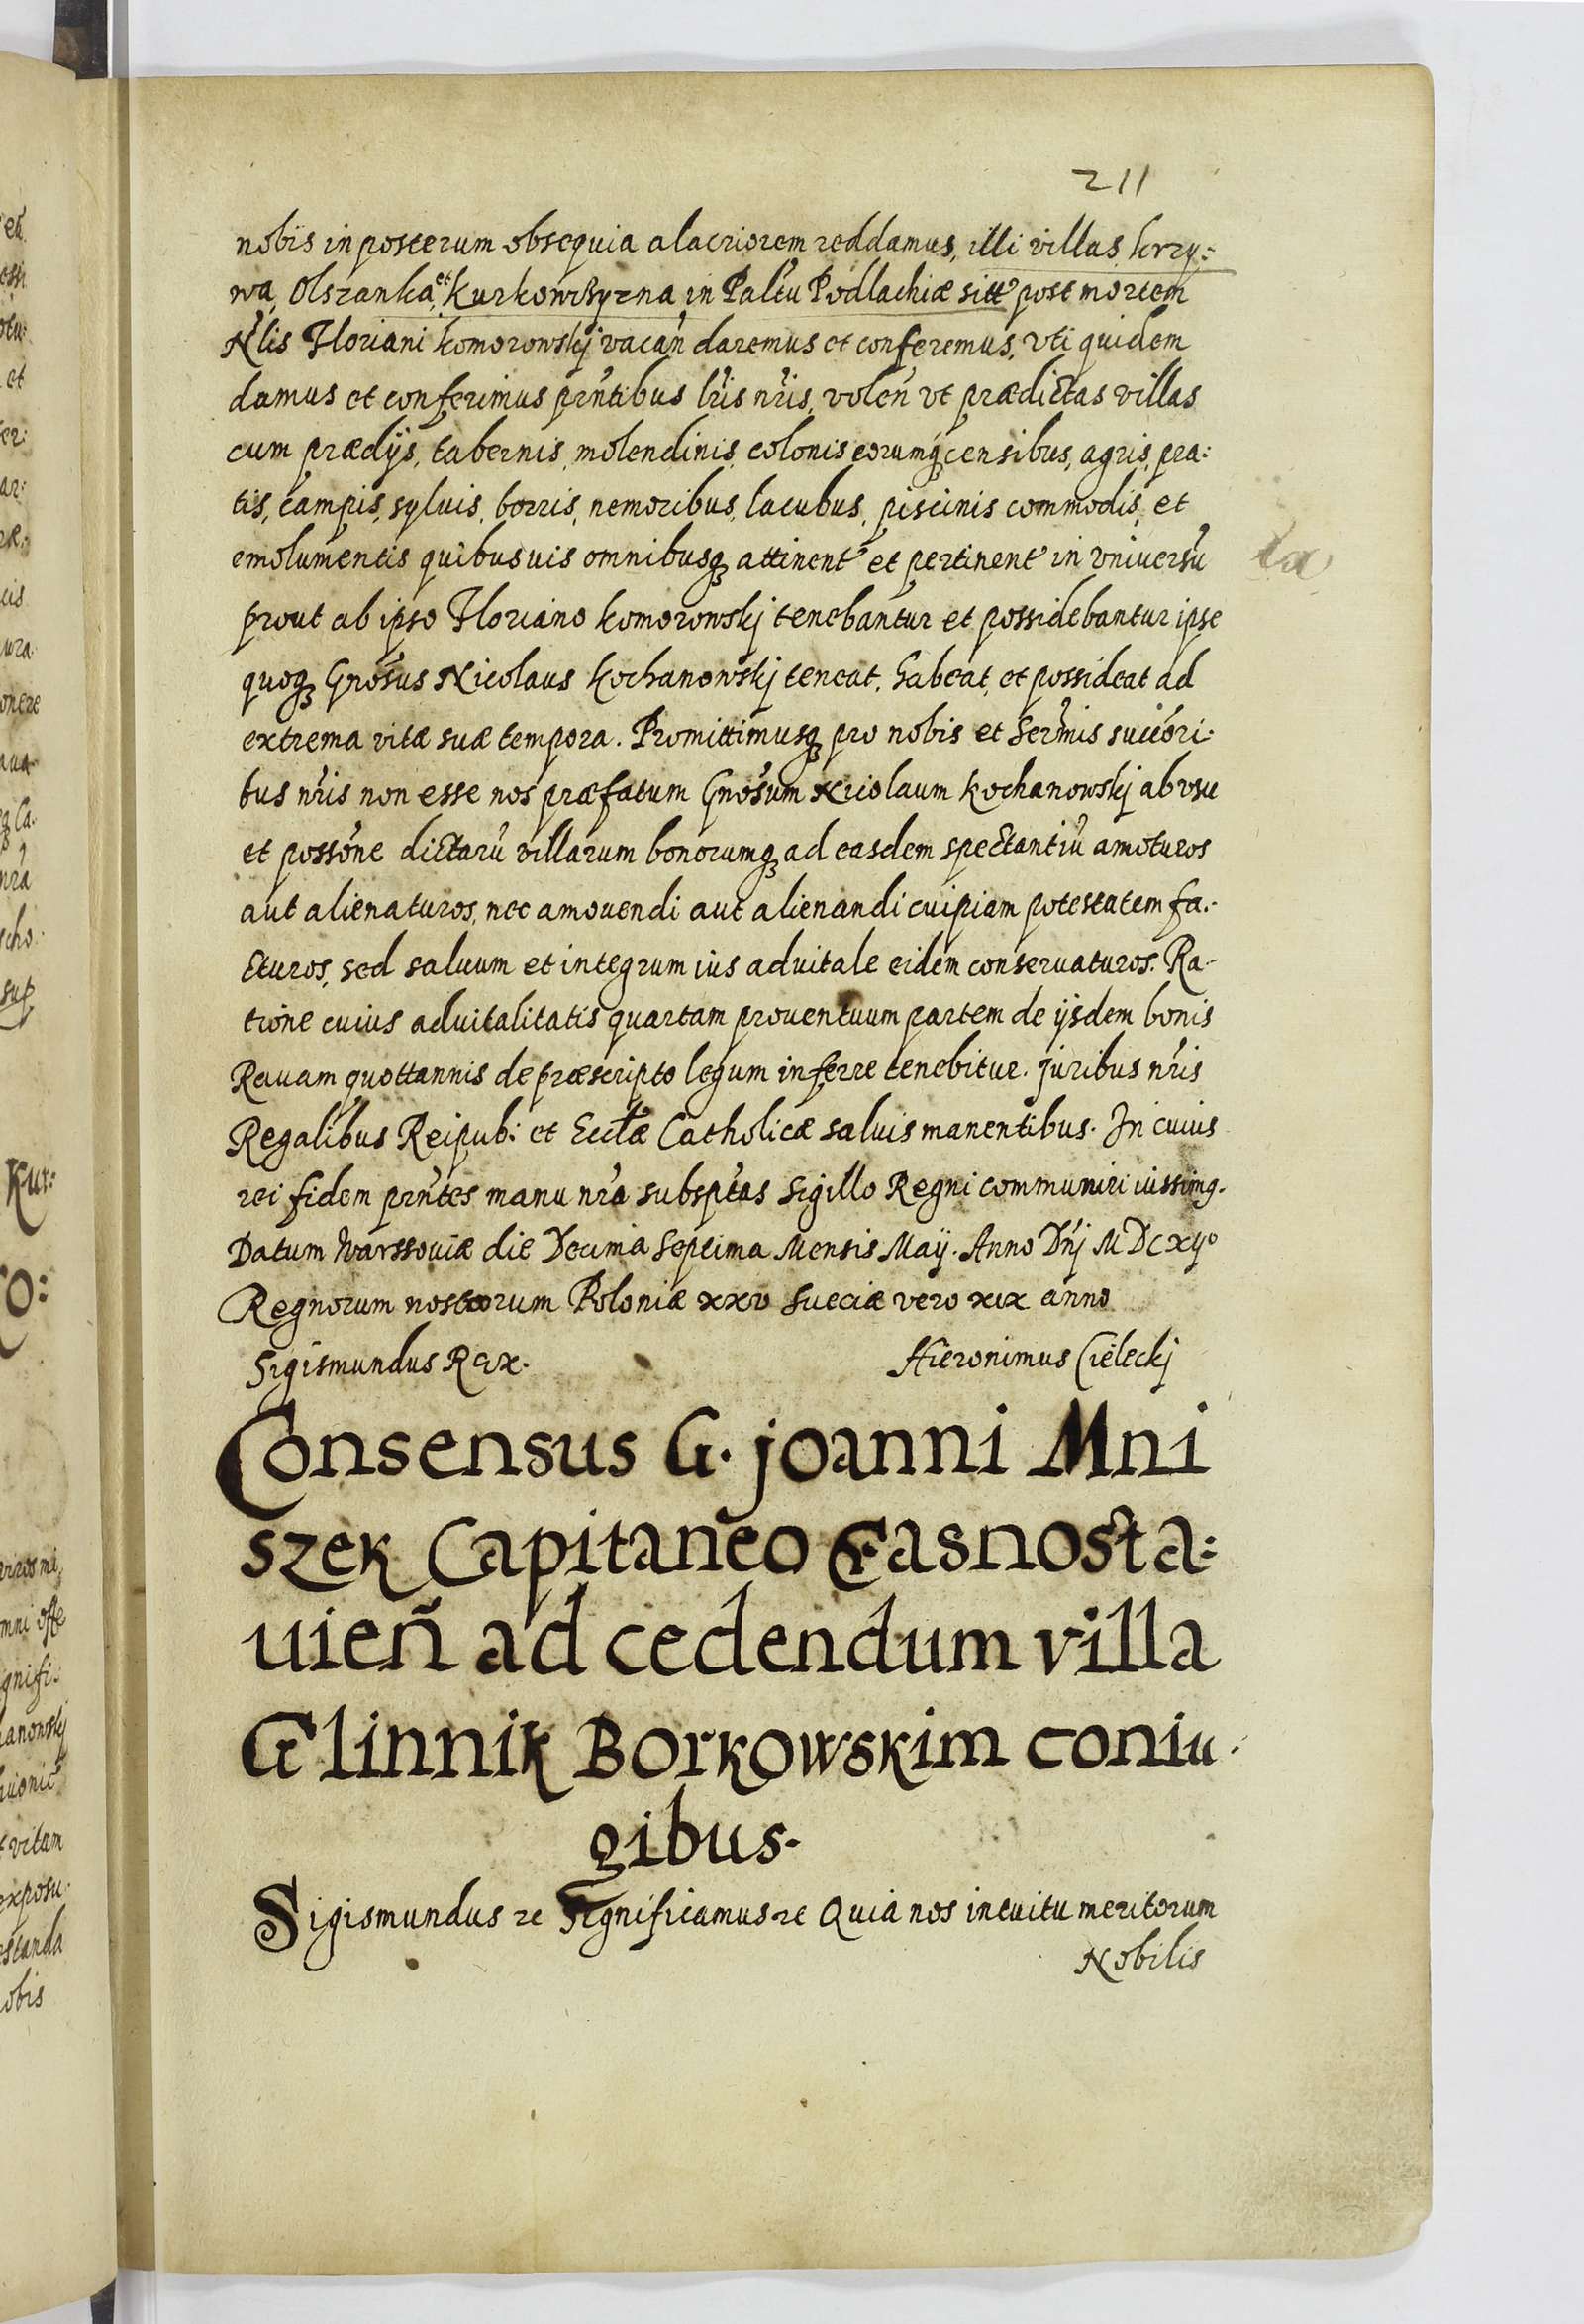 211
nobis in posterum obsequia alacriorem reddamus, illi villas krzy:
wa, Olszanka, et Kurkowszyzna in Paltu Podlachiæ sitt post mortem
Nlis Floriani Komorowskj vacan̄ daremus et conferemus, vti quidem
damus et conferimus prn̄tibus lr̄is nr̄is, volen̄ vt prædictas villas
cum prædijs, tabernis, molendinis, colonis eorumq censibus, agris, pra:
tis, campis, syluis, borris, nemoribus, lacubus, piscinis commodis, et
emolumentis quibusuis omnibusq attinent et pertinent in vniversū
prout ab ipso Floriano Komorowskj tenebantur et possidebantur ipse
quoq Gnōsus Nicolaus Kochanowskj teneat, habeat, et possideat ad
extrema vitæ suæ tempora. Promittimusq pro nobis et Serm̄is succōri-
bus nr̄is non esse nos præfatum Gnōsum Nicolaum Kochanowskj ab vsu
et possōne dictarū villarum bonorumq ad easdem spectantiū amoturos
aut alienaturos, nec amouendi aut alienandi cuipiam potestatem fa-
cturos, sed saluum et integrum ius aduitale eidem conseruaturos. Ra-
tione cuius aduitalitatis quartam prouentuum partem de ijsdem bonis
Rauam quottannis de præscripto legum inferre tenebitur. Juribus nr̄is
Regalibus Reipub: et Ecclæ Catholicæ saluis manentibus. In cuius
rei fidem prn̄tes manu nr̄a subsptas Sigillo Regni communiri iussimq.
Datum Varssouiæ die Decima Septima Mensis Maÿ. Anno Dn̄j MDCXIJo
Regnorum nostrorum Poloniæ xxv Sueciæ vero xix anno
Sigismundus Rex.
Hieronimus Cieleckj
Consensus G. Joanni Mni
szek Capitaneo Crasnosta:
uien̄ ad cedendum villa
Glinnik Borkowskim coniu-
gibus.
Sigismundus rc Significamus rc Quia nos intuitu meritorum
Nobilis